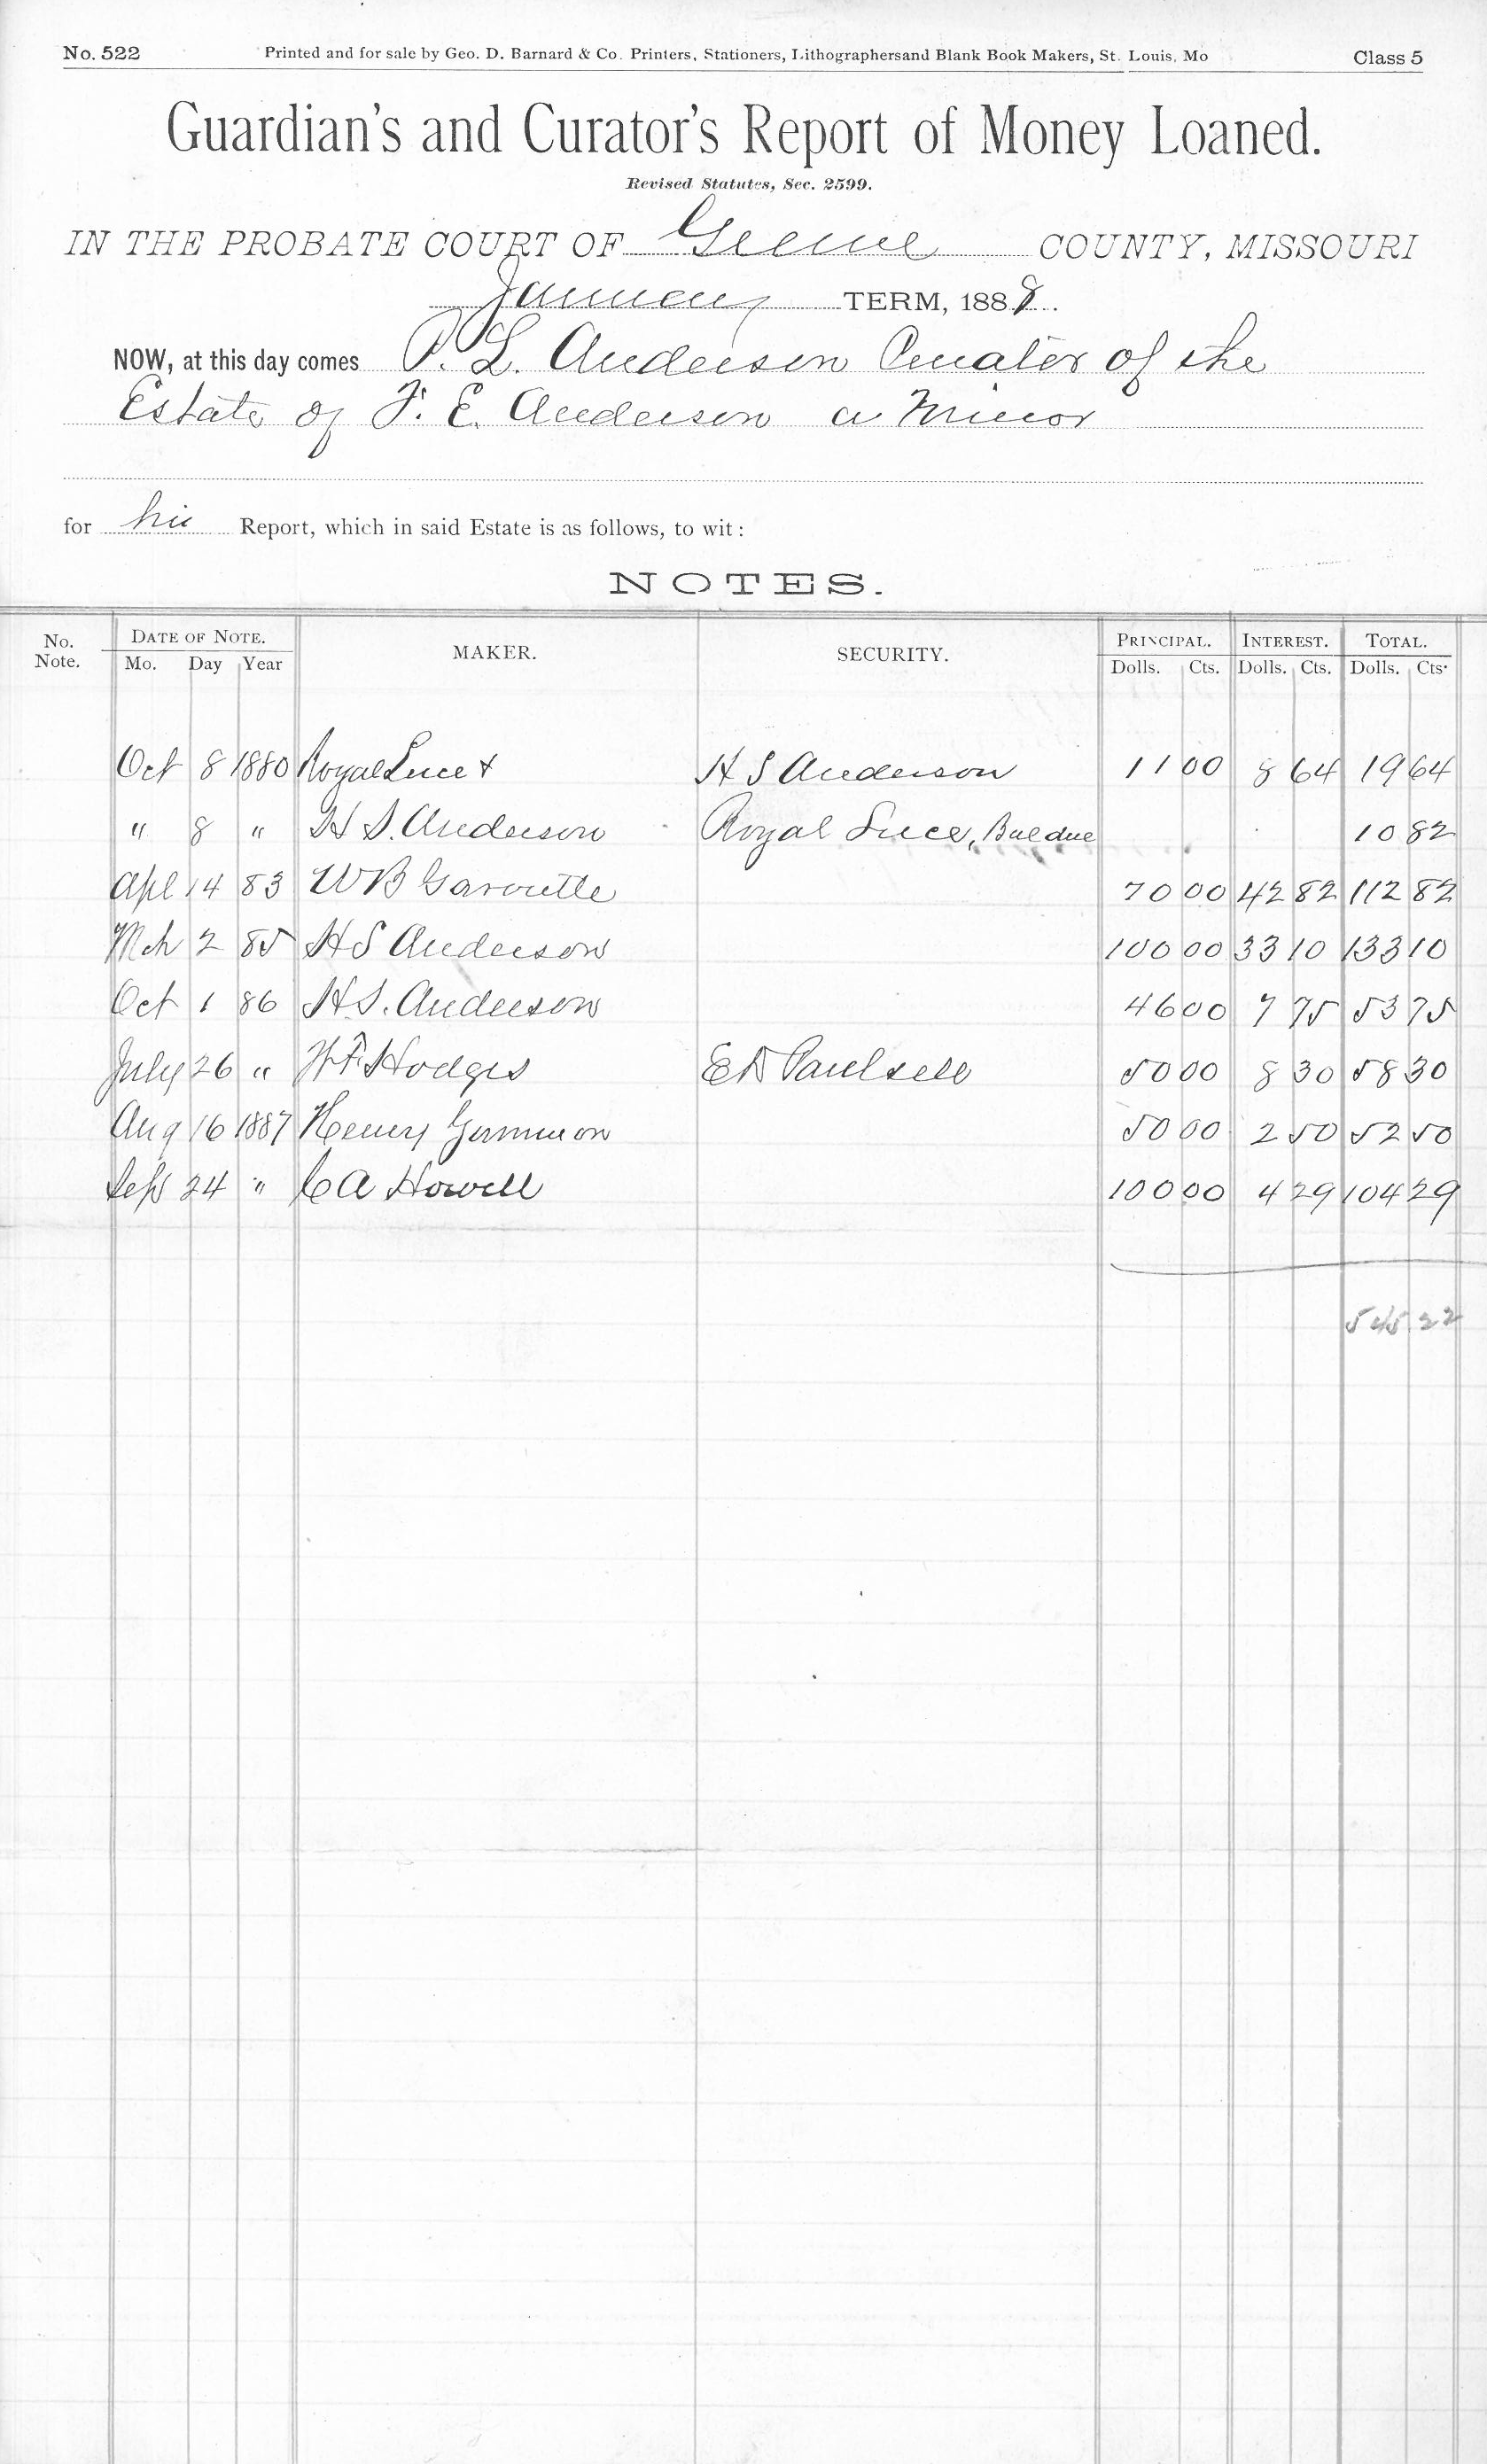 No. 522 Printed and for sale by Geo. D. Barnard & Co. Printers, Stationers, Lithographersand Blank Book Makers, St. Louis, Mo Class 5
Guardian's and Curator's Report of Money Loaned.
Revised Statutes, Sec. 2599.
IN THE PROBATE COURT OF Greene COUNTY, MISSOURI
January TERM, 1888.
NOW, at this day comes P. L. Anderson Curator of the
Estate of F. E. Anderson a Minor
for his Report, which in said Estate is as follows, to wit:
NOTES.
No. Note. DATE OF NOTE. MAKER. SECURITY. PRINCIPAL. INTEREST. TOTAL.
Mo. Day Year Dolls. Cts. Dolls. Cts. Dolls. Cts.
Oct 8 1880 Royal Luce & H S Anderson 11 00 8 64 19 64
" 8 " H S. Anderson Royal Luce, Bal due 10 82
Apl 14 83 W B Garoutte 70 00 42 82 112 82
Mch 2 85 H S Anderson 100 00 33 10 133 10
Oct 1 86 H. S. Anderson 46 00 7 75 53 75
July 26 " W F Hodges E D Paulsell 50 00 8 30 58 30
Aug 16 1887 Henry Gammon 50 00 2 50 52 50
Sept 24 " C A Howell 100 00 4 29 104 29
545.22